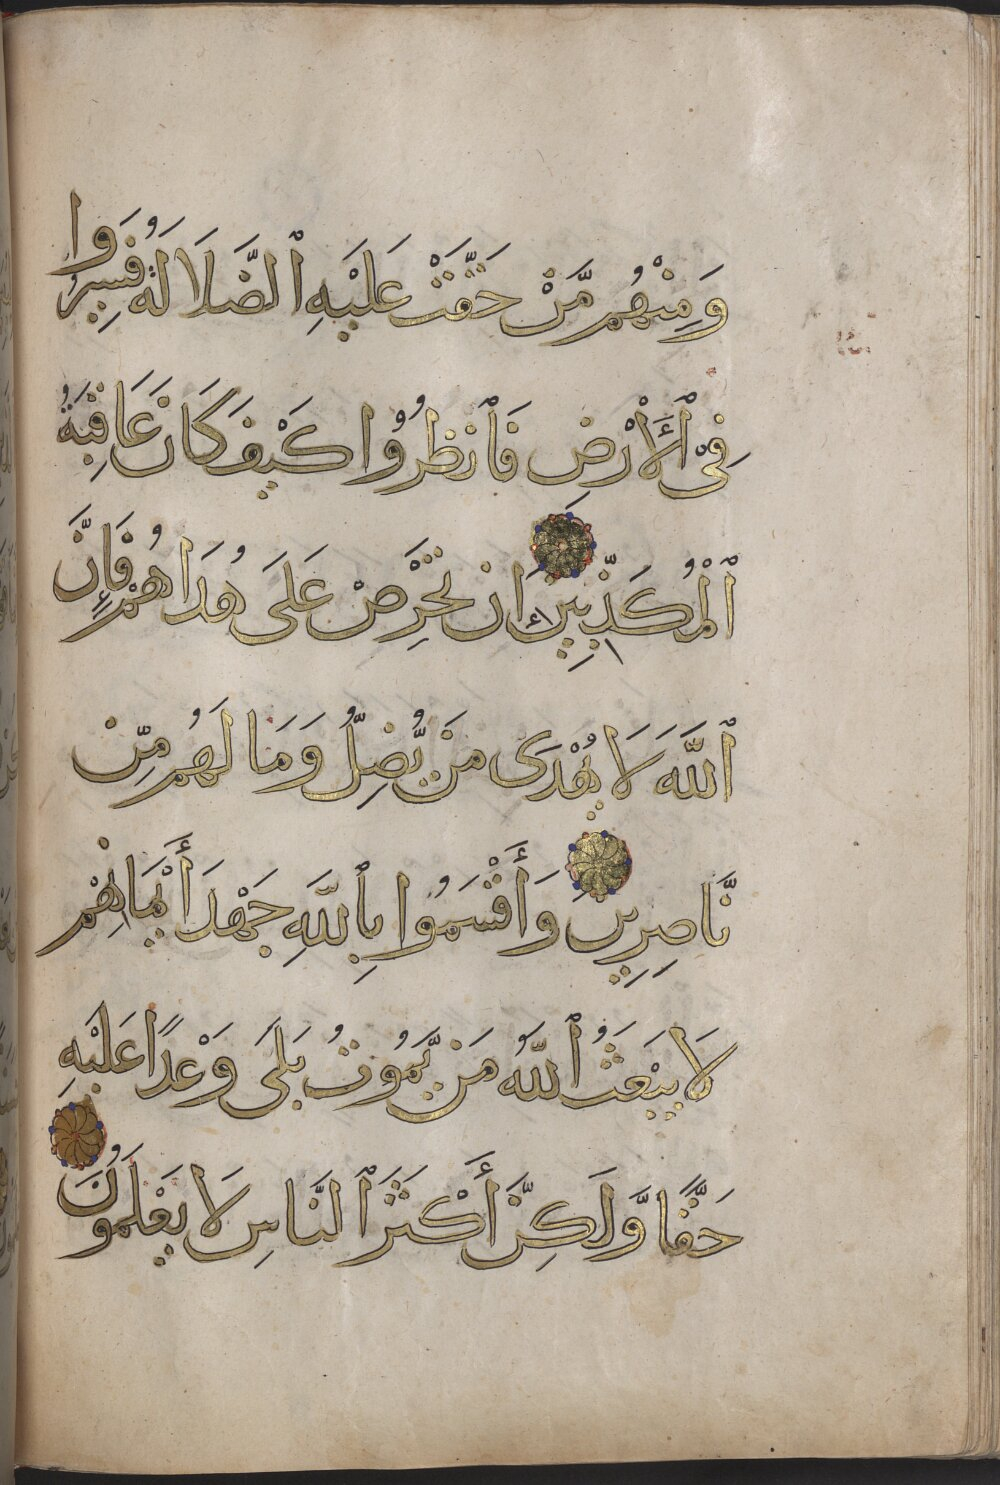 وَمِنْهُم مَّنْ حَقَّتْ عَلَيْهِ ٱلضَّلَالَةُ فَسِيرُوا
فِي ٱلْأَرْضِ فَٱنظُرُوا كَيْفَ كَانَ عَاقِبَةُ
ٱلْمُكَذِّبِينَ إِن تَحْرِصْ عَلَى هُدَاهُمْ فَإِنَّ
ٱللَّهَ لَا يُهْدَى مَن يُضِلُّ وَمَا لَهُم مِّن
نَّاصِرِينَ وَأَقْسَمُوا بِٱللَّهِ جَهْدَ أَيْمَانِهِمْ
لَا يَبْعَثُ ٱللَّهُ مَن يَمُوتُ بَلَى وَعْدًا عَلَيْهِ
حَقًّا وَّلَكِنَّ أَكْثَرَ ٱلنَّاسِ لَا يَعْلَمُونَ